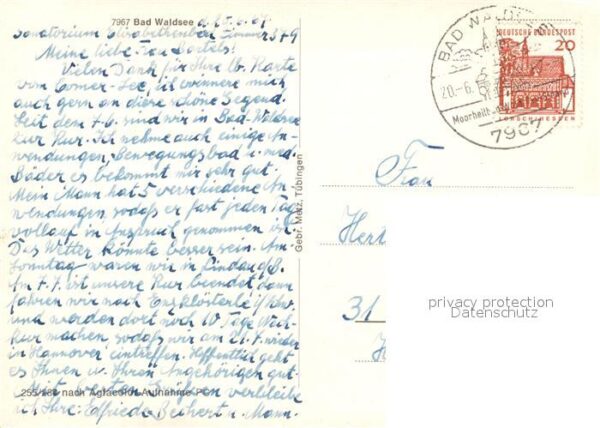 7967 Bad Waldsee
Sanatorium Elisabethenbad Zimmer 349
Meine liebe Frau Bartels!
Vielen Dank für Ihre lb. Karte
vom Comer-See, ich erinnere mich
auch gern an diese schöne Gegend.
Seit dem 7.6. sind wir in Bad-Waldsee
zur Kur. Ich nehme auch einige An-
wendungen, Bewegungsbad u. med.
Bäder es bekommt mir sehr gut.
Mein Mann hat 5 verschiedene An-
wendungen sodaß er fast jeden Tag
vollauf in Anspruch genommen ist.
Das Wetter könnte besser sein. Am
Sonntag waren wir in Lindau/B.
Am 7.7. ist unsere Kur beendet dann
fahren wir nach Enzklösterle
und werden dort noch 10 Tage Nach-
kur machen, sodaß wir am 21.7. wieder
in Hannover eintreffen. Hoffentlich geht
es Ihnen u. Ihren Angehörigen gut.
Mit besten Grüßen verbleibe
ich Ihre Elfriede Beichert u. Mann.
nach Agfacolor-Aufnahme
Gebr. Metz, Tübingen
DEUTSCHE BUNDESPOST
20
LORSCH/HESSEN
BAD WALDSEE
20.-6.
Moorheilb
7967
Frau
Hert
31
privacy protection
Datenschutz